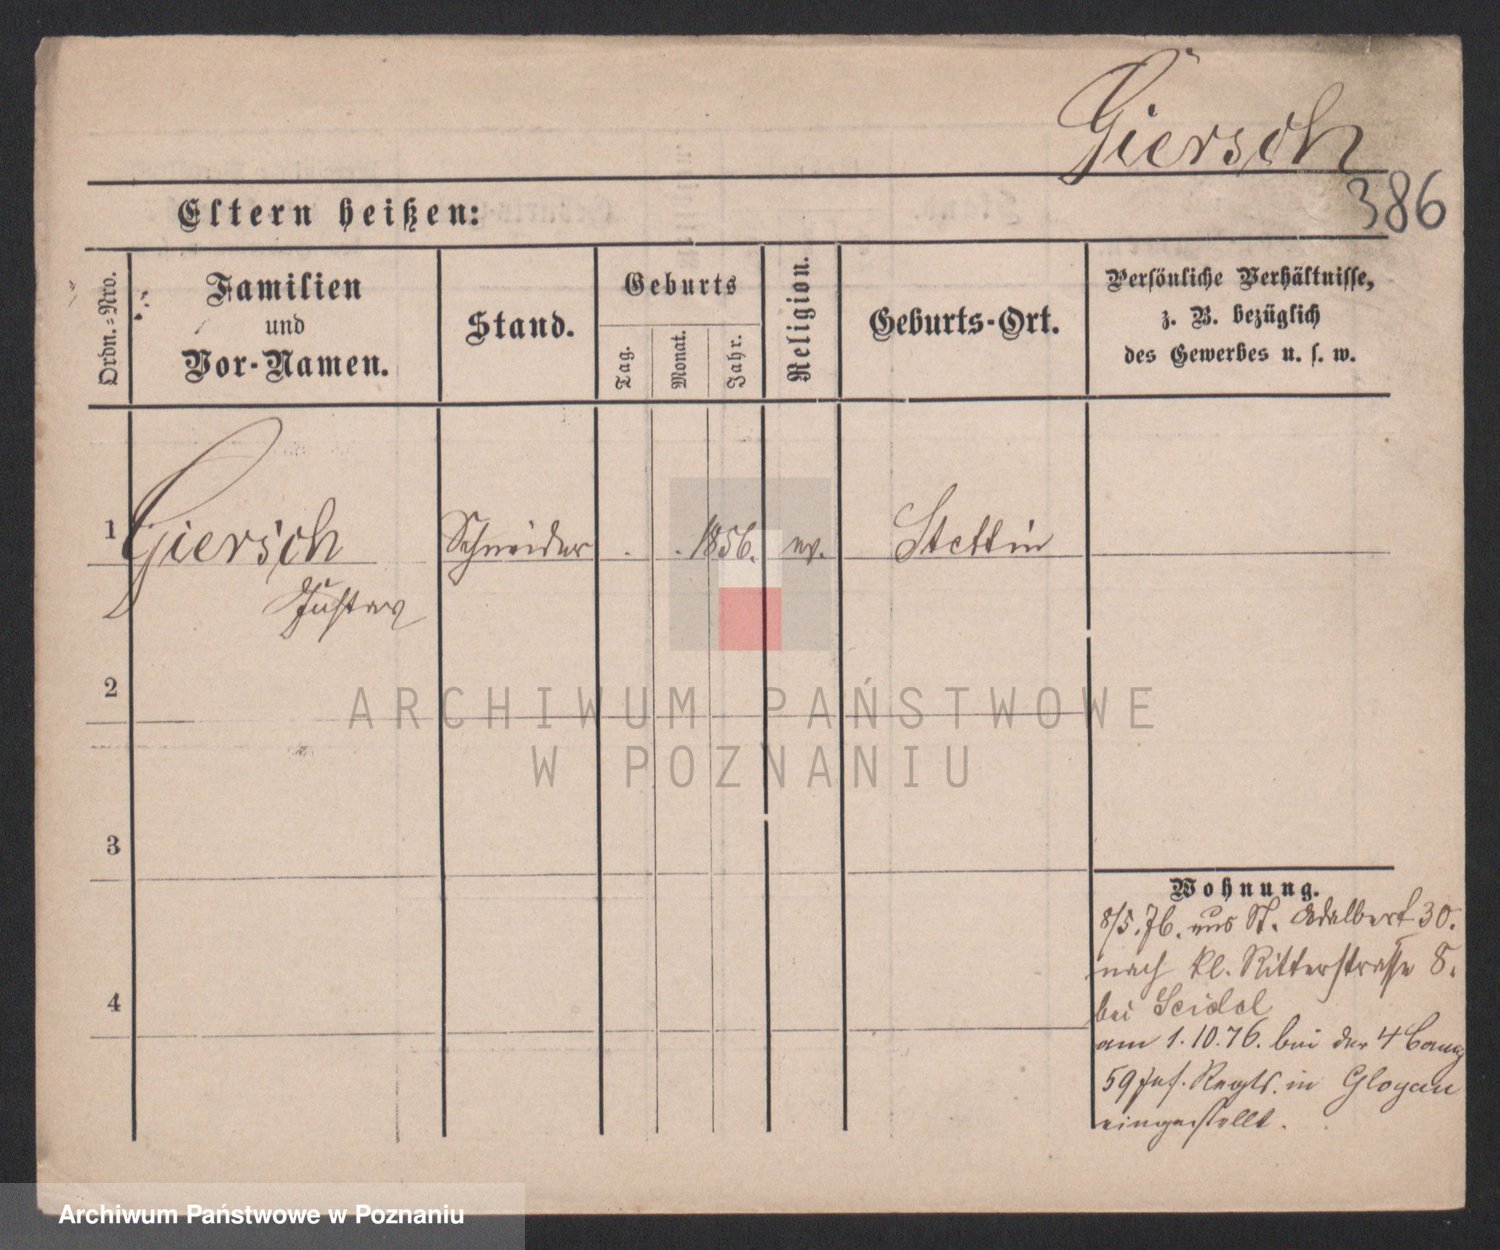 Giersch
386
Eltern heißen:
Ordn.-Nro.
Familien
und
Vor-Namen.
Stand.
Geburts
Tag.
Monat.
Jahr.
Religion.
Geburts-Ort.
Persönliche Verhältnisse,
z. B. bezüglich
des Gewerbes u. s. w.
1 Giersch Schneider . . 1856. ev. Stettin
Gustav
2
3
4
Wohnung.
8/5.76. aus St. Adalbert 30.
nach kl. Ritterstrasse 8.
bei Seidel
am 1.10.76. bei der 4 Comp
59 Inf. Regts. in Glogau
eingestellt.
ARCHIWUM PAŃSTWOWE
W POZNANIU
Archiwum Państwowe w Poznaniu